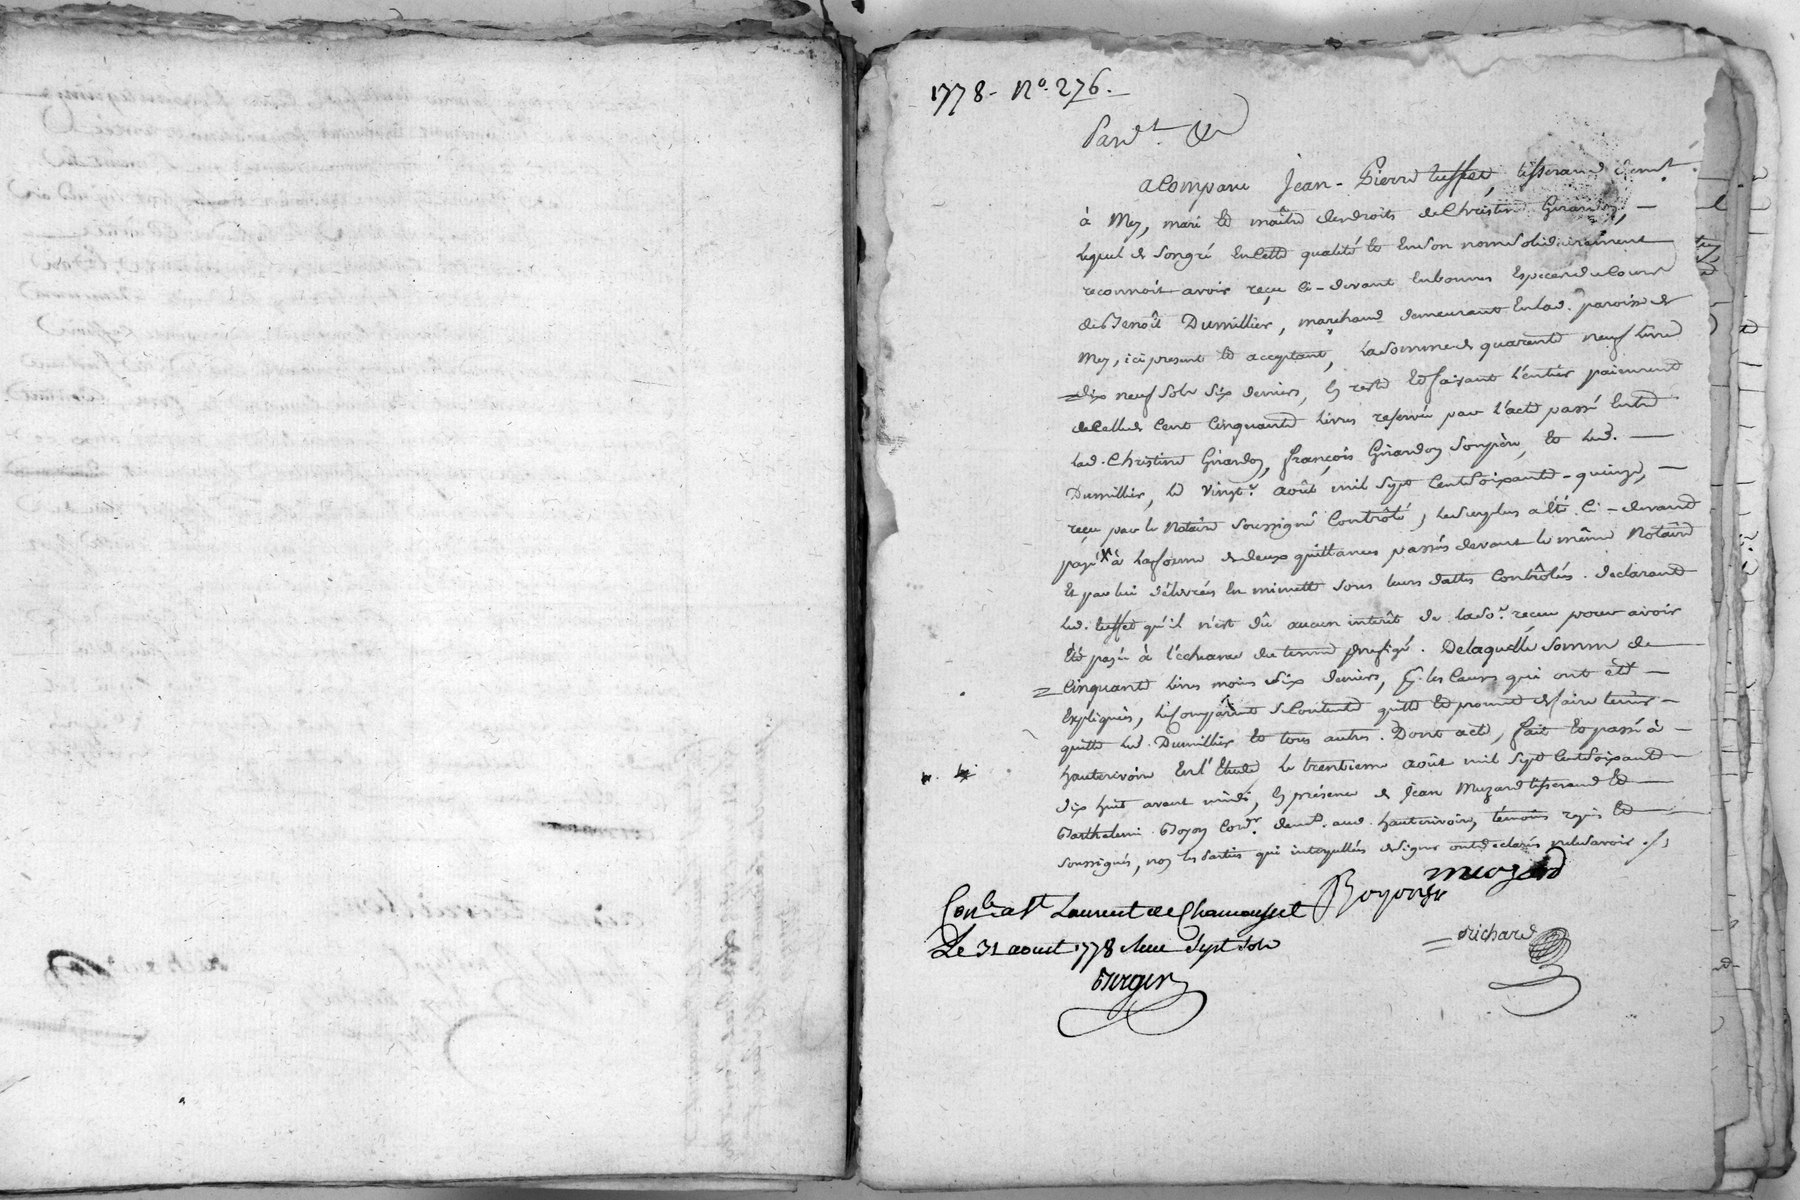 1778 - No. 276. -
Pard.t &
a Comparu Jean-Pierre tuffet, tisserand dem.t
à Mey, mari et maître des droits de Christine Girardon, -
Lequel de son gré en Cette qualité et en son nom solidairement
reconnoit avoir reçu Ci-devant en bonnes Especes de Cours
de Benoît Dumillier, marchand demeurant en lad. paroisse de
Mey, ici present et acceptant, la somme de quarante neuf livres
dix neuf sols six deniers, En reste et faisant l'entier paiement
de Celle de Cent Cinquante livres reservée par l'acte passé Entre
lad. Christine Girardon, françois Girardon son père, et led. -
Dumillier, le vingt.e août mil Sept Cent soixante-quinze, -
reçu par le Notaire soussigné Contrôlé, le surplus a été Ci-devant
payé à la forme de deux quittances passés devant le même Notaire
Et par lui délivrées En minutte sous leurs dattes Contrôlés. declarant
led. tuffet qu'il n'est dû aucun interêt de lad. so.e recue pour avoir
été payée à l'écheance du terme prefigé. De laquelle somme de
Cinquante livres moins six deniers, les Causes qui ont été -
Expliquées, le Comparant se Contente quitte et promet de faire tenir -
quitte led. Dumillier et tous autres. Dont acte, fait et passé à -
hauterivoire En l'Etude le trentieme août mil Sept Cent soixante
dix huit avant midi, En présence de Jean Muzard tisserand et
Barthelemi Boyon Cord.r dem.t aud. hauterivoire, témoins requis et
soussignés, non les Parties qui interpellées de signer ont declarés ne le savoir ./.
muzard
Boyon
Con.lé a St Laurent de Chamousset
Le 31 aoust 1778 Reçu Sept sols
richard
Berger